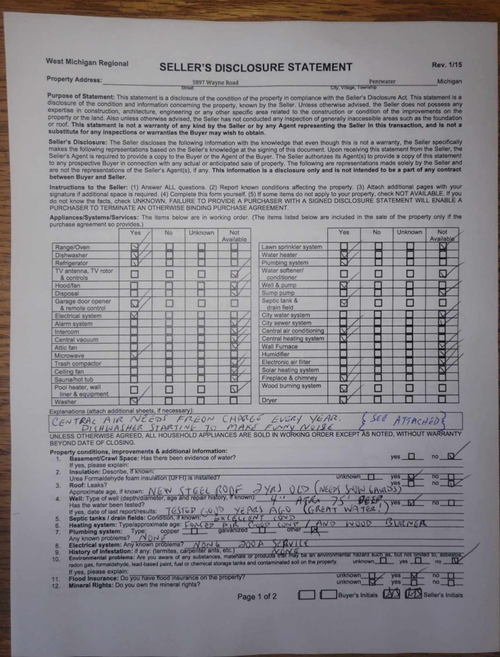 West Michigan Regional
SELLER'S DISCLOSURE STATEMENT
Rev. 1/15
Property Address: 5897 Wayne Road Pentwater Michigan
Street City, Village, Township
Purpose of Statement: This statement is a disclosure of the condition of the property in compliance with the Seller's Disclosure Act. This statement is a
disclosure of the condition and information concerning the property, known by the Seller. Unless otherwise advised, the Seller does not possess any
expertise in construction, architecture, engineering or any other specific area related to the construction or condition of the improvements on
the property or the land. Also unless otherwise advised, the Seller has not conducted any inspection of generally inaccessible areas such as the foundation
or roof. This statement is not a warranty of any kind by the Seller or by any Agent representing the Seller in this transaction, and is not a
substitute for any inspections or warranties the Buyer may wish to obtain.
Seller's Disclosure: The Seller discloses the following information with the knowledge that even though this is not a warranty, the Seller specifically
makes the following representations based on the Seller's knowledge at the signing of this document. Upon receiving this statement from the Seller, the
Seller's Agent is required to provide a copy to the Buyer or the Agent of the Buyer. The Seller authorizes its Agent(s) to provide a copy of this statement
to any prospective Buyer in connection with any actual or anticipated sale of property. The following are representations made solely by the Seller and
are not the representations of the Seller's Agent(s), if any. This information is a disclosure only and is not intended to be a part of any contract
between Buyer and Seller.
Instructions to the Seller: (1) Answer ALL questions. (2) Report known conditions affecting the property. (3) Attach additional pages with your
signature if additional space is required. (4) Complete this form yourself. (5) If some items do not apply to your property, check NOT AVAILABLE. If you
do not know the facts, check UNKNOWN. FAILURE TO PROVIDE A PURCHASER WITH A SIGNED DISCLOSURE STATEMENT WILL ENABLE A
PURCHASER TO TERMINATE AN OTHERWISE BINDING PURCHASE AGREEMENT.
Appliances/Systems/Services: The items below are in working order. (The items listed below are included in the sale of the property only if the
purchase agreement so provides.)
Yes No Unknown Not Available
Range/Oven
Dishwasher
Refrigerator
TV antenna, TV rotor
& controls
Hood/fan
Disposal
Garage door opener
& remote control
Electrical system
Alarm system
Intercom
Central vacuum
Attic fan
Microwave
Trash compactor
Ceiling fan
Sauna/hot tub
Pool heater, wall
liner & equipment
Washer
Yes No Unknown Not Available
Lawn sprinkler system
Water heater
Plumbing system
Water softener/
conditioner
Well & pump
Sump pump
Septic tank &
drain field
City water system
City sewer system
Central air conditioning
Central heating system
Wall Furnace
Humidifier
Electronic air filter
Solar heating system
Fireplace & chimney
Wood burning system
Dryer
Explanations (attach additional sheets, if necessary):
CENTRAL AIR NEEDS FREON CHARGE EVERY YEAR. {SEE ATTACHED}
DISHWASHER STARTING TO MAKE FUNNY NOISE
UNLESS OTHERWISE AGREED, ALL HOUSEHOLD APPLIANCES ARE SOLD IN WORKING ORDER EXCEPT AS NOTED, WITHOUT WARRANTY
BEYOND DATE OF CLOSING.
Property conditions, improvements & additional information:
1. Basement/Crawl Space: Has there been evidence of water? yes no
If yes, please explain:
2. Insulation: Describe, if known:
Urea Formaldehyde foam insulation (UFFI) is installed? unknown yes no
3. Roof: Leaks? yes no
Approximate age, if known: NEW STEEL ROOF 2 YRS OLD (NEEDS SNOW GUARDS)
4. Well: Type of well (depth/diameter, age and repair history, if known): 4" 75' DEEP
Has the water been tested? yes no
If yes, date of last report/results: TESTED YEARS AGO (GREAT WATER!)
5. Septic tanks / drain fields: Condition, if known: EXCELLENT COND
6. Heating system: Type/approximate age: FORCED AIR GOOD COND / AND WOOD BURNER
7. Plumbing system: Type: copper galvanized other
Any known problems? NONE
8. Electrical system: Any known problems? NONE 200A SERVICE
9. History of infestation: if any: (termites, carpenter ants, etc.) NONE
10. Environmental problems: Are you aware of any substances, materials or products that may be an environmental hazard such as, but not limited to, asbestos,
radon gas, formaldehyde, lead-based paint, fuel or chemical storage tanks and contaminated soil on the property. unknown yes no
If yes, please explain:
11. Flood Insurance: Do you have flood insurance on the property? unknown yes no
12. Mineral Rights: Do you own the mineral rights? unknown yes no
Page 1 of 2
Buyer's Initials
Seller's Initials